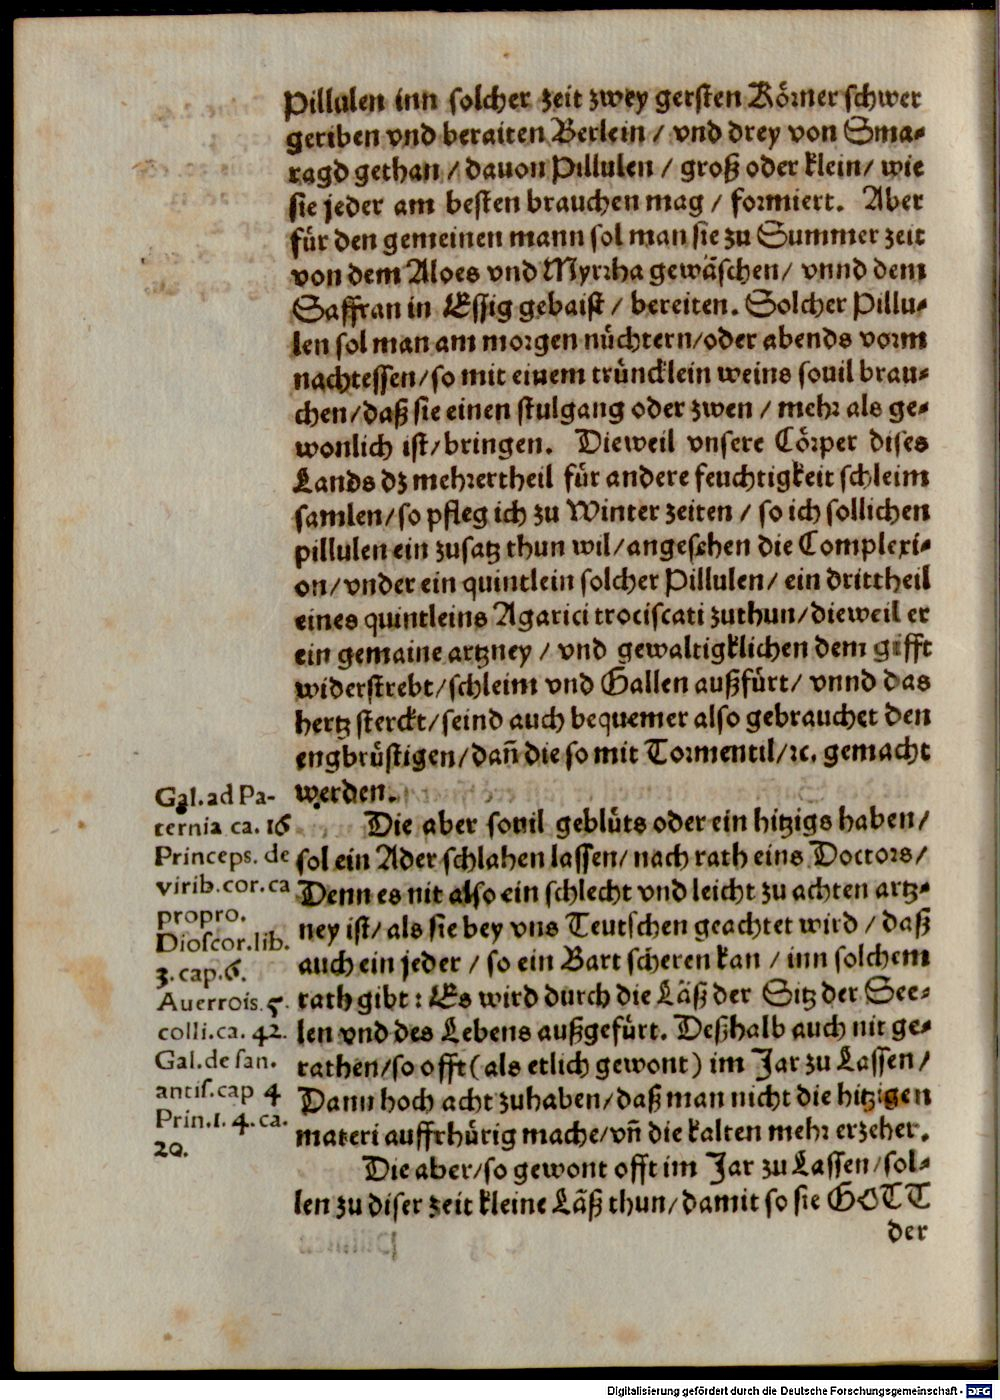 Pillulen inn solcher zeit zwey gersten Körner schwer
geriben vnd beraiten Berlein / vnd drey von Sma⸗
ragd gethan / dauon Pillulen / groß oder klein/ wie
sie jeder am besten brauchen mag / formiert. Aber
für den gemeinen mann sol man sie zu Summer zeit
von dem Aloes vnd Myrrha gewäschen/ vnnd dem
Saffran in Essig gebaist / bereiten. Solcher Pillu⸗
len sol man am morgen nüchtern/oder abends vorm
nachtessen/so mit einem trüncklein weins souil brau⸗
chen/daß sie einen stulgang oder zwen / mehr als ge⸗
wonlich ist/bringen. Dieweil vnsere Cörper dises
Lands dz mehrertheil für andere feuchtigkeit schleim
samlen/so pfleg ich zu Winter zeiten / so ich sollichen
pillulen ein zusatz thun wil/angesehen die Complexi⸗
on/vnder ein quintlein solcher Pillulen/ ein drittheil
eines quintleins Agarici trociscati zuthun/dieweil er
ein gemaine artzney / vnd gewaltigklichen dem gifft
widerstrebt/schleim vnd Gallen außfürt/ vnnd das
hertz sterckt/seind auch bequemer also gebrauchet den
engbrüstigen/dañ die so mit Tormentil/ꝛc. gemacht
werden.
Die aber souil geblüts oder ein hitzigs haben/
sol ein Ader schlahen lassen/nach rath eins Doctors/
Denn es nit also ein schlecht vnd leicht zu achten artz⸗
ney ist/als sie bey vns Teutschen geachtet wird / daß
auch ein jeder / so ein Bart scheren kan / inn solchem
rath gibt: Es wird durch die Läß der Sitz der See⸗
len vnd des Lebens außgefürt. Deßhalb auch nit ge⸗
rathen/so offt (als etlich gewont) im Jar zu Lassen/
Dann hoch acht zuhaben/daß man nicht die hitzigen
materi auffrhürig mache/vñ die kalten mehr erzeher.
Die aber/so gewont offt im Jar zu Lassen/sol⸗
len zu diser zeit kleine Läß thun/damit so sie GOTT
der
Gal. ad Pa-
ternia ca. 16
Princeps. de
virib. cor. ca
propro.
Dioscor. lib.
3. cap. 6.
Auerrois. 5.
colli. ca. 42.
Gal. de san.
antis. cap 4
Prin. 1. 4. ca.
20.
Digitalisierung gefördert durch die Deutsche Forschungsgemeinschaft - DFG